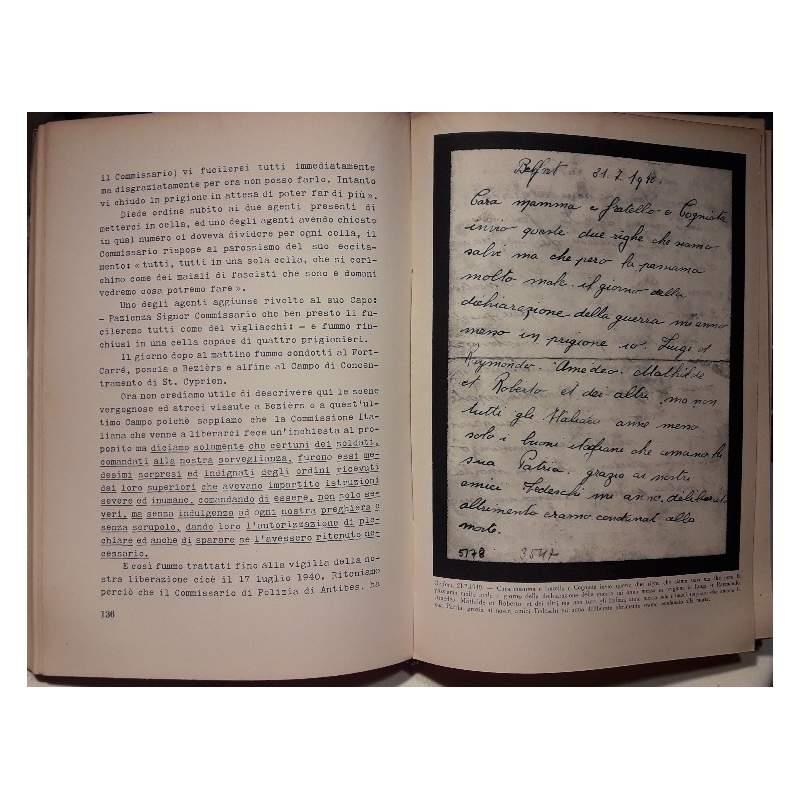 il Commissario) vi fucilerei tutti immediatamente
ma disgraziatamente per ora non posso farlo. Intanto
vi chiudo in prigione in attesa di poter far di più».
Diede ordine subito ai due agenti presenti di
metterci in cella, ed uno degli agenti avendo chiesto
in qual numero ci doveva dividere per ogni cella, il
Commissario rispose al parossismo del suo eccita-
mento: «tutti, tutti in una sola cella, che si cori-
chino come dei maiali di fascisti che sono e domani
vedremo cosa potremo fare».
Uno degli agenti aggiunse rivolto al suo Capo:
— Pazienza Signor Commissario che ben presto li fu-
cileremo tutti come dei vigliacchi: — e fummo rin-
chiusi in una cella capace di quattro prigionieri.
Il giorno dopo al mattino fummo condotti al Fort-
Carré, poscia a Bezièrs e alfine al Campo di Concen-
tramento di St. Cyprien.
Ora non crediamo utile di descrivere qui le scene
vergognose ed atroci vissute a Bezièrs o a quest'ul-
timo Campo poichè sappiamo che la Commissione Ita-
liana che venne a liberarci fece un'inchiesta al pro-
posito ma diciamo solamente che certuni dei soldati,
comandati alla nostra sorveglianza, furono essi me-
desimi sorpresi ed indignati degli ordini ricevuti
dei loro superiori che avevano impartito istruzioni
severe ed inumane, comandando di essere, non solo se-
veri, ma senza indulgenza ad ogni nostra preghiera e
senza scrupolo, dando loro l'autorizzazione di pic-
chiare ed anche di sparare se l'avessero ritenuto ne-
cessario.
E così fummo trattati fino alla vigilia della no-
stra liberazione cioè il 17 luglio 1940. Riteniamo
perciò che il Commissario di Polizia di Antibes, ha
136
Belfort 21.7.1940.
Cara mamma e fratello e Cognata
invio queste due righe che siamo
salvi ma che però la passama
molto male. il giorno della
dichiarazione della guerra mi anno
meno in prigione io. Luigi et
Raymondo. Amedeo. Mathilde
et Roberto et dei altri. ma non
tutti gli Italiani anno meso
solo i buoni italiani che amano la
sua Patria. grazie ai nostri
amici Tedeschi mi anno deliberati
altrimento eramo condanati alla
morte.
5178 3547
Belfort, 21.7.1940. — Cara mamma e fratello e Cognata invio queste due righe che siamo salvi ma che però la
passama molto male il giorno della dichiarazione della guerra mi anno messo in prigione io Luigi et Raymondo,
Amedeo, Mathilde et Roberto et dei altri ma non tutti gli Italiani anno messo solo i buoni italiani che amano la
sua Patria, grazie ai nostri amici Tedeschi mi anno deliberati altrimento eramo condanati alla morte.